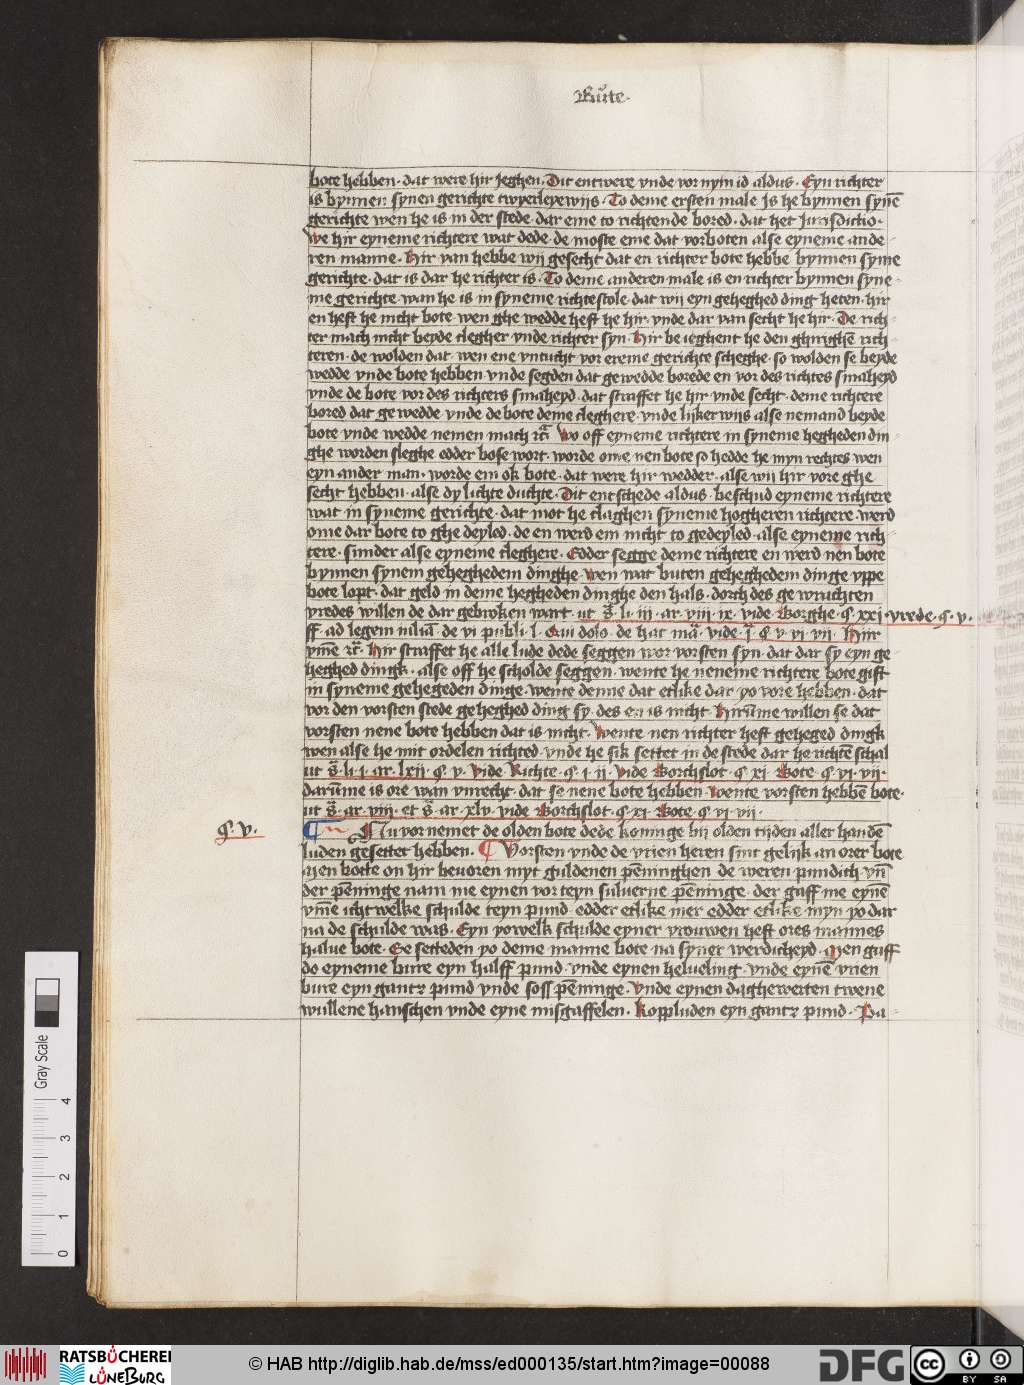 Bute
bote hebben · dat were hir Jeghen · Dit entwere vnde vor nym id aldus · Eyn richter
is bynnen synen gerichte twyerleyewijs · To deme ersten male Js he bynnen synē
gerichte wen he is in der stede · dar eme to richtende bored · dat het Jurisdictio ·
We hir eyneme richtere wat dede · de moste eme dat vorboten alse eyneme ande-
ren manne · Hir van hebbe wij gesecht dat en richter bote hebbe bynnen syme
gerichte · dat is dar he richter is · To deme anderen male is en richter bynnen syne-
me gerichte · wan he is in syneme richtestole · dat wij eyn geheghed ding heten · hir
en heft he nicht bote · wen ghe wedde heft he hir · vnde dar van secht he hir · De rich-
ter mach nicht beyde clegher vnde richter syn · Hir be ieghent he den rich-
teren · de wolden dat · wen ene vntucht vor ereme gerichte scheghe · so wolden se beyde
wedde vnde bote hebben · vnde segden dat gewedde borede en vor des richtes smaheyd
vnde de bote vor des richters smaheyd · dat straffet he hir vnde secht · deme richtere
bored dat gewedde · vnde de bote deme cleghere · vnde lijkerwijs alse nemand beyde
bote vnde wedde nemen mach · Wo off eyneme richtere in syneme hegheden din-
ghe worden sleghe edder bose wort · worde ome nen bote so hedde he myn rechtes wen
eyn ander man · worde em ok bote · dat were hir wedder · alse wij hir vore ghe
secht hebben · alse dy lichte duchte · Dit entschede aldus · beschud eyneme richtere
wat in syneme gerichte · dat mot he claghen syneme hogheren richtere · werd
ome dar bote to ghe deyled · de en werd em nicht to gedeyled · alse eyneme rich
tere · sunder alse eyneme cleghere · Edder segge deme richtere en werd nen bote
bynnen synem geheghedem dinghe · wen wat buten geheghedem dinge vppe
bote lopt · dat geld in deme hegheden dinghe den hals · dorch des ge wruchten
vredes willen de dar gebroken wart · ut s̄ · li · iii · ar · viii · ix · vide Borghe · ꝗ · xxi · vrede · ꝗ · v ·
ff · ad legem iuliā · de vi publi · l · Qui dolo · de hac mā · vide · ꝗ · v · vi · vii · Hir
Hir straffet he alle lude dede seggen wor vorsten syn · dat dar sy eyn ge
heghed dingk · alse off he scholde seggen · wente he neneme richtere bote gift
in syneme gehegeden dinge · wente denne dat etlike dar yo vore hebben · dat
vor den vorsten stede geheghed ding sy · des en is nicht · Hirūme willen se dat
vorsten nene bote hebben dat is nicht · Wente nen richter heft geheged dingk
wen alse he mit ordelen richted · vnde he sik settet in de stede dar he richtē schal
ut s̄ · li · i · ar · lxii · ꝗ · v · Vide Richte · ꝗ · i · ii · Vide Borchslot · ꝗ · xi · Bote · ꝗ · vi · vii ·
darūme is ore wan vnrecht · dat se nene bote hebben · Wente vorsten hebbē bote ·
ut s̄ · ar · viii · et s̄ · ar · xlv · vide Borchslot · ꝗ · xi · Bote · ꝗ · vi · vii ·
ꝗ · v ·
¶ Nu vor nemet de olden bote dede koninge bij olden tijden aller handē
luden gesettet hebben · ¶ Vorsten vnde de vrien heren sint gelijk an orer bote
Men botte on hir beuoren myt guldenen pēninghen · de weren pundich · vn̄
der pēninge nam me eynen vor teyn suluerne pēninge · der gaff me eynē
ichtwelke schulde teyn pund · edder etlike mer edder etlike myn yo dar
na de schulde was · Eyn yowelk schulde eyner vrouwen heft ores mannes
halue bote · Se setteden yo deme manne bote na syner werdicheyd · Men gaff
do eyneme bure eyn halff pund · vnde eynen helueling · vnde eynē vrien
bure eyn gantz pund vnde soss pēninge · Vnde eynen daghewerten twene
wullene hanschen vnde eyne misgaffelen · Koppluden eyn gantz pund · Pa-
Gray Scale
0 1 2 3 4
RATSBÜCHEREI
LÜNEBURG
© HAB http://diglib.hab.de/mss/ed000135/start.htm?image=00088
DFG
cc BY SA